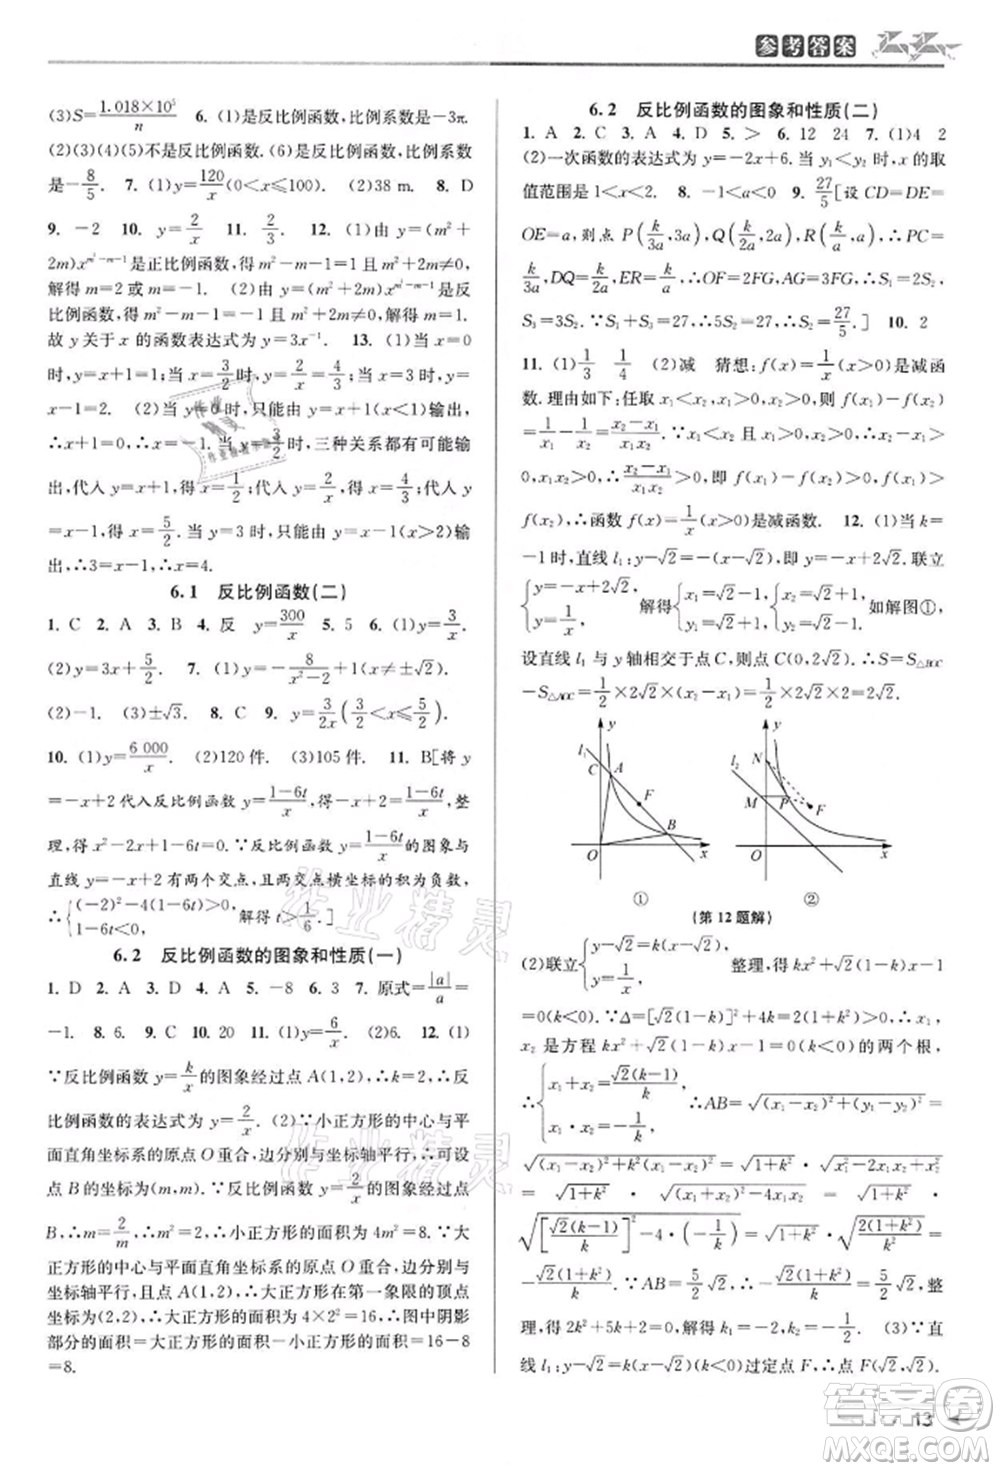 参考答案
(3)S=1.018×10⁵/n 6. (1)是反比例函数,比例系数是-3π.
(2)(3)(4)(5)不是反比例函数.(6)是反比例函数,比例系数
是-8/5. 7. (1)y=120/x(0<x≤100). (2)38 m. 8. D
9. -2 10. y=2/x 11. y=2/x 12. (1)由 y=(m²+
2m)x^(m²-m-1)是正比例函数,得 m²-m-1=1 且 m²+2m≠0.
解得 m=2 或 m=-1. (2)由 y=(m²+2m)x^(m²-m-1)是反
比例函数,得 m²-m-1=-1 且 m²+2m≠0. 解得 m=1.
故 y 关于 x 的函数表达式为 y=3x⁻¹. 13. (1)当 x=0
时,y=-x+1=1;当 x=3/2时,y=2/x=4/3;当 x=3 时,y=
x-1=2. (2)当 y=0 时,只能由 y=-x+1(x<1)输出,
∴x+1=0.∴x=-1;当 y=3/2时,三种关系都有可能输
出,代入 y=x+1,得 x=1/2;代入 y=2/x,得 x=4/3;代入 y=
x-1,得 x=5/2. 当 y=3 时,只能由 y=x-1(x>2)输
出,∴3=x-1.∴x=4.
6.1 反比例函数(二)
1. C 2. A 3. B 4. 反 y=300/x 5. 5 6. (1)y=3/x.
(2)y=3/x+5/2. 7. (1)y=-8/(x²-2)+1(x≠±√2).
(2)-1. (3)±√3. 8. C 9. y=3/2x(3/2<x≤5/2).
10. (1)y=6 000/x. (2)120 件. (3)105 件. 11. B[将
y=-x+2 代入反比例函数 y=(1-6t)/x,得-x+2=(1-6t)/x,整
理,得 x²-2x+1-6t=0.∵反比例函数 y=(1-6t)/x的图象与
直线 y=-x+2 有两个交点,且两交点横坐标的积为负数,
∴{(-2)²-4(1-6t)>0, 1-6t<0, 解得 t>1/6.]
6.2 反比例函数的图象和性质(一)
1. D 2. A 3. D 4. A 5. -8 6. 3 7. 原式=|a|/a=
-1. 8. 6. 9. C 10. 20 11. (1)y=6/x. (2)6. 12. (1)
∵反比例函数 y=k/x的图象经过点 A(1,2),∴k=2.∴反
比例函数的表达式为 y=2/x. (2)∵小正方形的中心与平
面直角坐标系的原点 O 重合,边分别与坐标轴平行,∴设
点 B 的坐标为(m,m).∵反比例函数 y=2/x的图象经过点
B,∴m=2/m.∴m²=2.∴小正方形的面积为 4m²=8.∵大
正方形的中心与平面直角坐标系的原点 O 重合,边分别与
坐标轴平行,且点 A(1,2),∴大正方形在第一象限的顶点
坐标为(2,2).∴大正方形的面积为 4×2²=16.∴图中阴影
部分的面积=大正方形的面积-小正方形的面积=16-8
=8.
6.2 反比例函数的图象和性质(二)
1. A 2. C 3. A 4. D 5. > 6. 12 24 7. (1)4 2
(2)一次函数的表达式为 y=-2x+6. 当 y₁<y₂ 时,x 的取
值范围是 1<x<2. 8. -1<a<0 9. 27/5[设 CD=DE=
OE=a,则点 P(k/3a,3a),Q(k/2a,2a),R(k/a,a).∴PC=
k/3a,DQ=k/2a,ER=k/a.∴OF=2FG,AG=3FG.∴S₁=2S₂,
S₃=3S₂.∵S₁+S₃=27,∴5S₂=27.∴S₂=27/5.] 10. 2
11. (1)1/3 1/4 (2)减 猜想:f(x)=1/x(x>0)是减函
数. 理由如下:任取 x₁<x₂,且x₁>0,x₂>0,则f(x₁)-f(x₂)
=1/x₁-1/x₂=(x₂-x₁)/(x₁x₂).∵x₁<x₂,且 x₁>0,x₂>0,∴x₂-x₁>
0,x₁x₂>0.∴(x₂-x₁)/(x₁x₂)>0,即 f(x₁)-f(x₂)>0.∴f(x₁)>
f(x₂).∴函数 f(x)=1/x(x>0)是减函数. 12. (1)当 k=
-1时,直线 l₁:y-√2=-(x-√2),即 y=-x+2√2. 联立
{y=-x+2√2, y=1/x, 解得{x₁=√2-1, y₁=√2+1, {x₂=√2+1, y₂=√2-1. 如解图①,
设直线 l₁ 与 y 轴相交于点 C,则点 C(0,2√2).∴S=S△BOC
-S△AOC=1/2×2√2×(x₂-x₁)=1/2×2√2×2=2√2.
y l₁ C A F B O x ①
y l₂ N M P F O x ②
(第 12 题解)
(2)联立{y-√2=k(x-√2), y=1/x, 整理,得 kx²+√2(1-k)x-1
=0(k<0).∵Δ=[√2(1-k)]²+4k=2(1+k²)>0,∴x₁,
x₂ 是方程 kx²+√2(1-k)x-1=0(k<0)的两个根,
∴{x₁+x₂=√2(k-1)/k, x₁·x₂=-1/k. ∴AB=√((x₁-x₂)²+(y₁-y₂)²)=
√((x₁-x₂)²+(1/x₁-1/x₂)²)=√(1+k²)·√(x₁²-2x₁x₂+x₂²)
=√(1+k²)·√((x₁+x₂)²-4x₁x₂)=√(1+k²)·
√([√2(k-1)/k]²-4(-1/k))=√(1+k²)·√(2(1+k²)/k²)=
-√2(1+k²)/k.∵AB=5/2√2,∴-√2(1+k²)/k=5√2/2. 整理,
得 2k²+5k+2=0. 解得 k₁=-2,k₂=-1/2. (3)∵直
线 l₁:y-√2=k(x-√2)(k<0)过定点 F,∴点 F(√2,√2).
13
答案圈
MXQE.COM
作业精灵
作业精灵